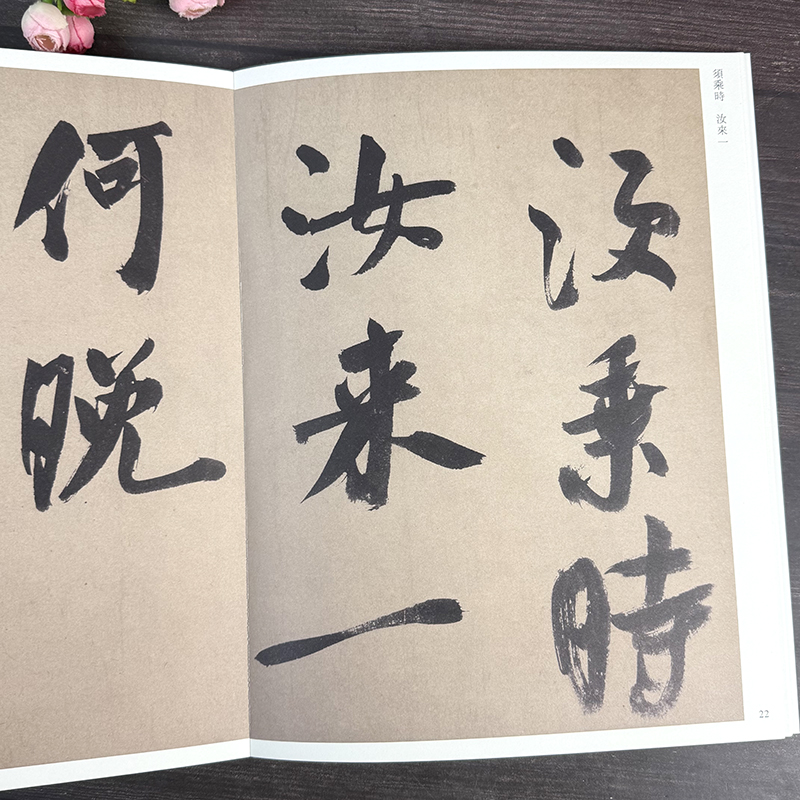 須乘時
汝來一
何晚
須乘時 汝來一
22